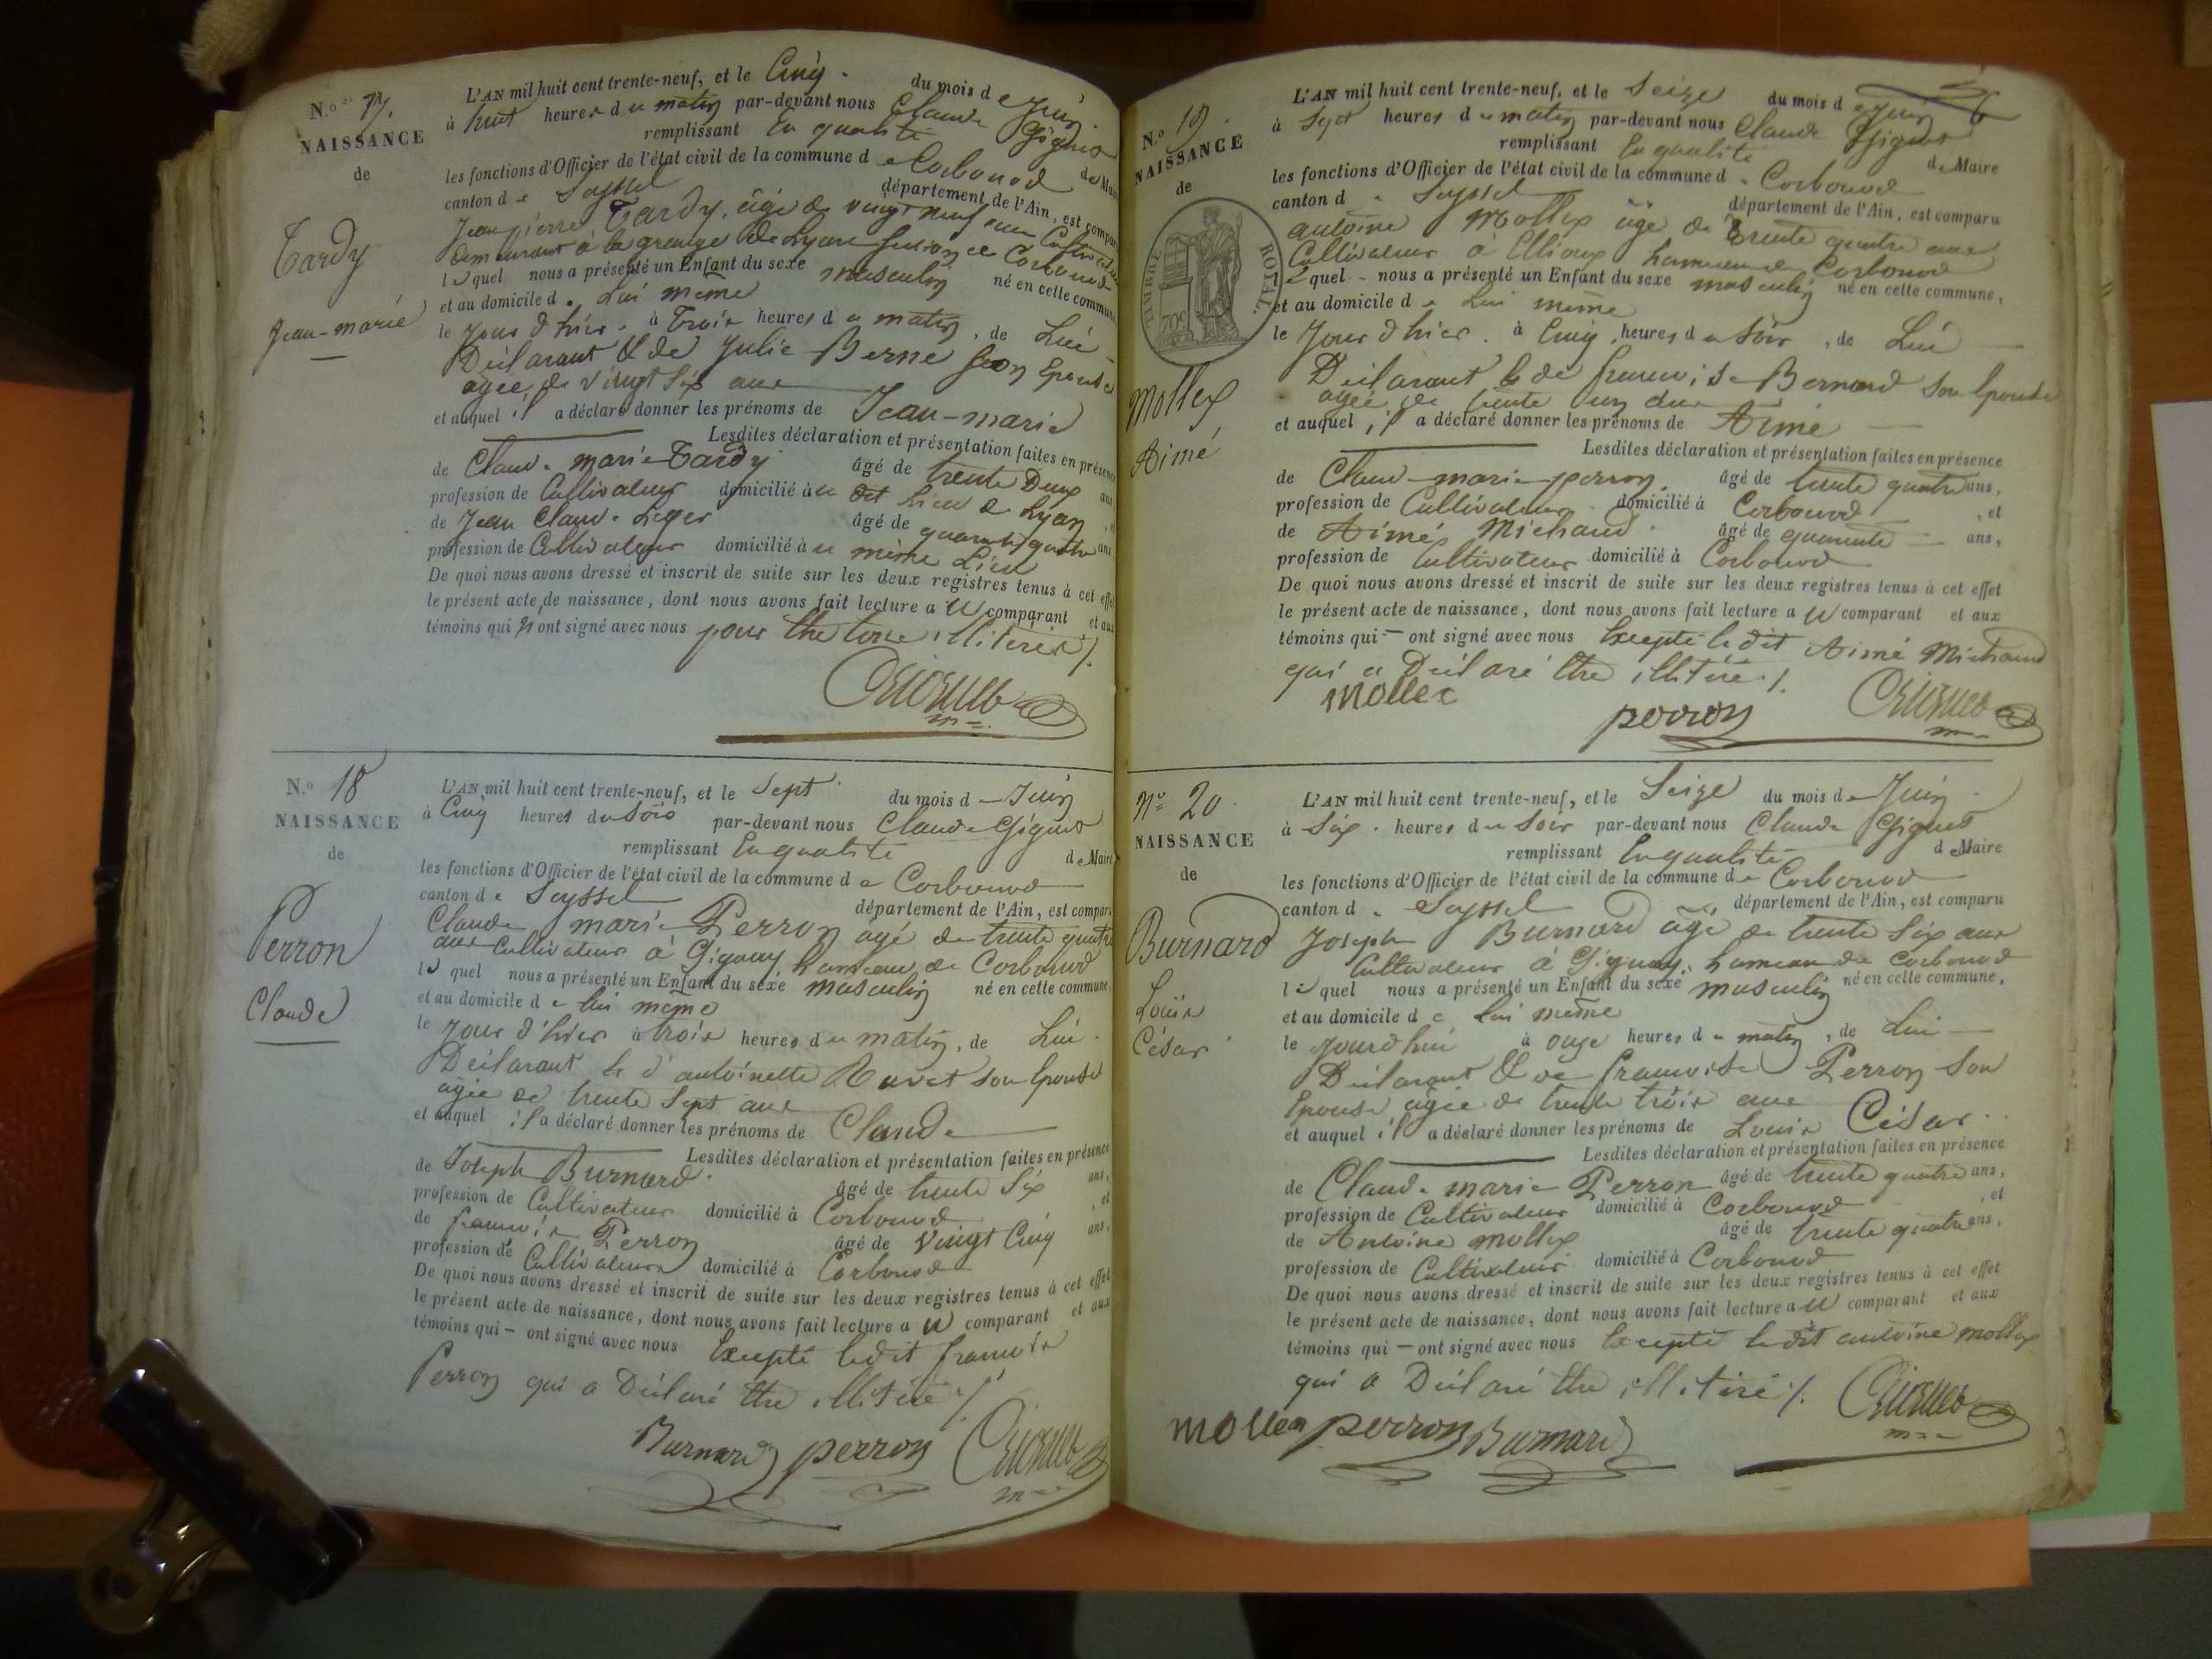 N.o 17.
NAISSANCE
de
Tardy
Jean-marie
L'AN mil huit cent trente-neuf, et le Cinq du mois de Juin
à huit heures du matin par-devant nous Claude Giguet
remplissant En qualité de Maire
les fonctions d'Officier de l'état civil de la commune de Corbonod
canton de Seyssel département de l'Ain, est comparu
Jean pierre Tardy, âgé de vingt neuf ans Cultivateur
demeurant à la grange de Lyan section de Corbonod
lequel nous a présenté un Enfant du sexe masculin né en cette commune
et au domicile de Lui même
le Jour d'hier à Trois heures du matin, de Lui
Déclarant & de Julie Berne son Epouse
agée de vingt Six ans
et auquel il a déclaré donner les prénoms de Jean-marie
Lesdites déclaration et présentation faites en présence
de Claude marie Tardy âgé de trente Deux ans
profession de Cultivateur domicilié au dit Lieu de Lyan, et
de Jean Claude Leger âgé de quarante quatre ans
profession de Cultivateur domicilié au même Lieu
De quoi nous avons dressé et inscrit de suite sur les deux registres tenus à cet effet
le présent acte de naissance, dont nous avons fait lecture au comparant et aux
témoins qui n'ont signé avec nous pour être tous illitérés ./.
Giguet
m=
N.o 18
NAISSANCE
de
Perron
Claude
L'AN mil huit cent trente-neuf, et le Sept du mois de Juin
à Cinq heures du Soir par-devant nous Claude Giguet
remplissant En qualité de Maire
les fonctions d'Officier de l'état civil de la commune de Corbonod
canton de Seyssel département de l'Ain, est comparu
Claude marie Perron agé de trente quatre
ans Cultivateur à Gignez hameau de Corbonod
lequel nous a présenté un Enfant du sexe masculin né en cette commune,
et au domicile de lui même
le Jour d'hier à trois heures du matin, de Lui
Déclarant & d'antoinette Ravet son Epouse
agée de trente Sept ans
et auquel il a déclaré donner les prénoms de Claude
Lesdites déclaration et présentation faites en présence
de Joseph Burnard âgé de trente Six ans,
profession de Cultivateur domicilié à Corbonod, et
de françois Perron âgé de vingt Cinq ans,
profession de Cultivateur domicilié à Corbonod
De quoi nous avons dressé et inscrit de suite sur les deux registres tenus à cet effet
le présent acte de naissance, dont nous avons fait lecture au comparant et aux
témoins qui – ont signé avec nous Excepté ledit françois
Perron qui a Déclaré être illitéré ./.
Burnard perron Giguet
m=
N.o 19.
NAISSANCE
de
TIMBRE ROYAL.
70c
Mollex
Aimé
L'AN mil huit cent trente-neuf, et le Seize du mois de Juin
à Sept heures du matin par-devant nous Claude Giguet
remplissant En qualité de Maire
les fonctions d'Officier de l'état civil de la commune de Corbonod
canton de Seyssel département de l'Ain, est comparu
antoine Mollex âgé de Trente quatre ans
Cultivateur à Ellioux hameau de Corbonod
lequel nous a présenté un Enfant du sexe masculin né en cette commune,
et au domicile de Lui même
le Jour d'hier à Cinq heures du Soir, de Lui
Déclarant & de françoise Bernard son Epouse
agée de trente un ans
et auquel il a déclaré donner les prénoms de Aimé
Lesdites déclaration et présentation faites en présence
de Claude marie perron âgé de trente quatre ans,
profession de Cultivateur domicilié à Corbonod, et
de Aimé Michaud âgé de quarante ans,
profession de Cultivateur domicilié à Corbonod
De quoi nous avons dressé et inscrit de suite sur les deux registres tenus à cet effet
le présent acte de naissance, dont nous avons fait lecture au comparant et aux
témoins qui – ont signé avec nous Excepté ledit Aimé Michaud
qui a Déclaré être illitéré ./.
Mollex
perron
Giguet
m=
N.o 20.
NAISSANCE
de
Burnard
Louis
César
L'AN mil huit cent trente-neuf, et le Seize du mois de Juin
à Six heures du Soir par-devant nous Claude Giguet
remplissant En qualité de Maire
les fonctions d'Officier de l'état civil de la commune de Corbonod
canton de Seyssel département de l'Ain, est comparu
Joseph Burnard âgé de trente Six ans
Cultivateur à Gignez, hameau de Corbonod
lequel nous a présenté un Enfant du sexe masculin né en cette commune,
et au domicile de lui même
le Jourd'hui à onze heures du matin, de Lui
Déclarant & de françoise Perron Son
Epouse agée de trente trois ans
et auquel il a déclaré donner les prénoms de Louis César
Lesdites déclaration et présentation faites en présence
de Claude marie Perron âgé de trente quatre ans,
profession de Cultivateur domicilié à Corbonod, et
de Antoine mollex âgé de trente quatre ans,
profession de Cultivateur domicilié à Corbonod
De quoi nous avons dressé et inscrit de suite sur les deux registres tenus à cet effet
le présent acte de naissance, dont nous avons fait lecture au comparant et aux
témoins qui – ont signé avec nous Excepté ledit antoine mollex
qui a Déclaré être illitéré ./. Giguet
m=
mollex perron Burnard